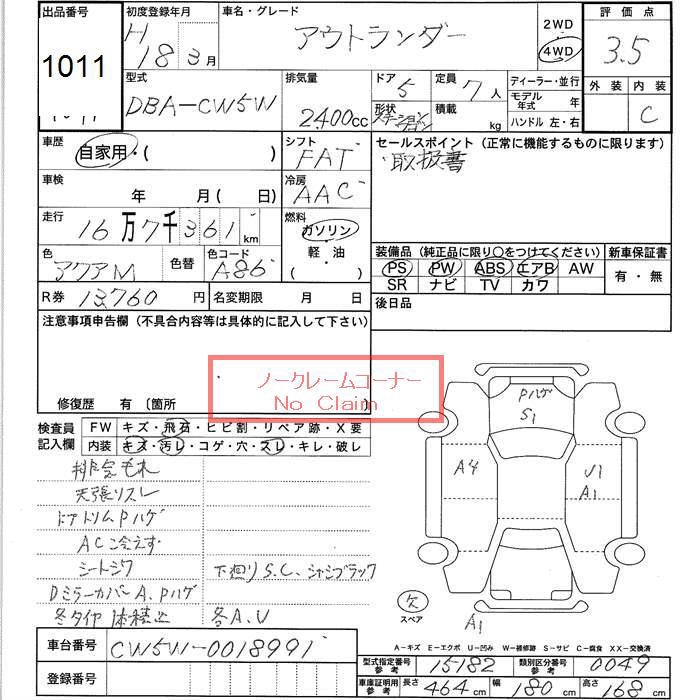 出品番号 1011
初度登録年月 H 18 3月
車名・グレード アウトランダー
2WD
4WD
評価点 3.5
外装 内装
C
型式 DBA-CW5W
排気量 2400cc
ドア 5
定員 7人
形状
積載 kg
ディーラー・並行
モデル年式 年
ハンドル 左・右
車歴 自家用・( )
シフト FAT
車検 年 月( 日)
冷房 AAC
走行 16万7千361km
燃料 ガソリン
軽・油
( )
色 アクアM
色替
色コード A86
R券 13,760円
名変期限 月 日
セールスポイント(正常に機能するものに限ります)
取扱書
装備品(純正品に限り〇をつけてください)
PS PW ABS エアB AW
SR ナビ TV カワ
新車保証書
有・無
後日品
注意事項申告欄(不具合内容等は具体的に記入して下さい)
ノークレームコーナー
No Claim
修復歴 有〔箇所
検査員記入欄
FW キズ・飛石・ヒビ割・リペア跡・X要
内装 キズ・汚レ・コゲ・穴・スレ・キレ・破レ
天張リスレ
ドアトリムPハゲ
AC冷えず
シートシワ
下廻りS.C、シャシブラック
DミラーカバーA、Pハゲ
冬タイヤ 体積込
各A、U
Pハゲ
S1
A4
U1
A1
欠
スペア
A1
A-キズ E-エクボ U-凹み W-補修跡 S-サビ C-腐食 XX-交換済
車台番号 CW5W-0018991
登録番号
型式指定番号参考 15182
類別区分番号参考 0049
車庫証明用参考 長さ 464cm 幅 180cm 高さ 168cm